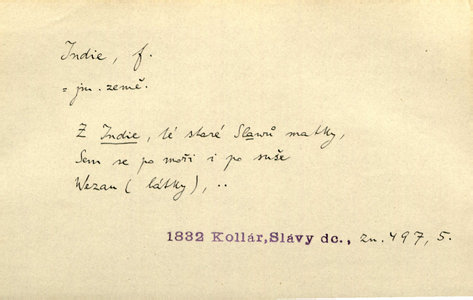 Indie, f.
= jm. země.
Z Indie, té staré Slawů matky,
Sem se po moři i po suše
Wezau (látky), ..
1832 Kollár, Slávy dc., zn. 497, 5.